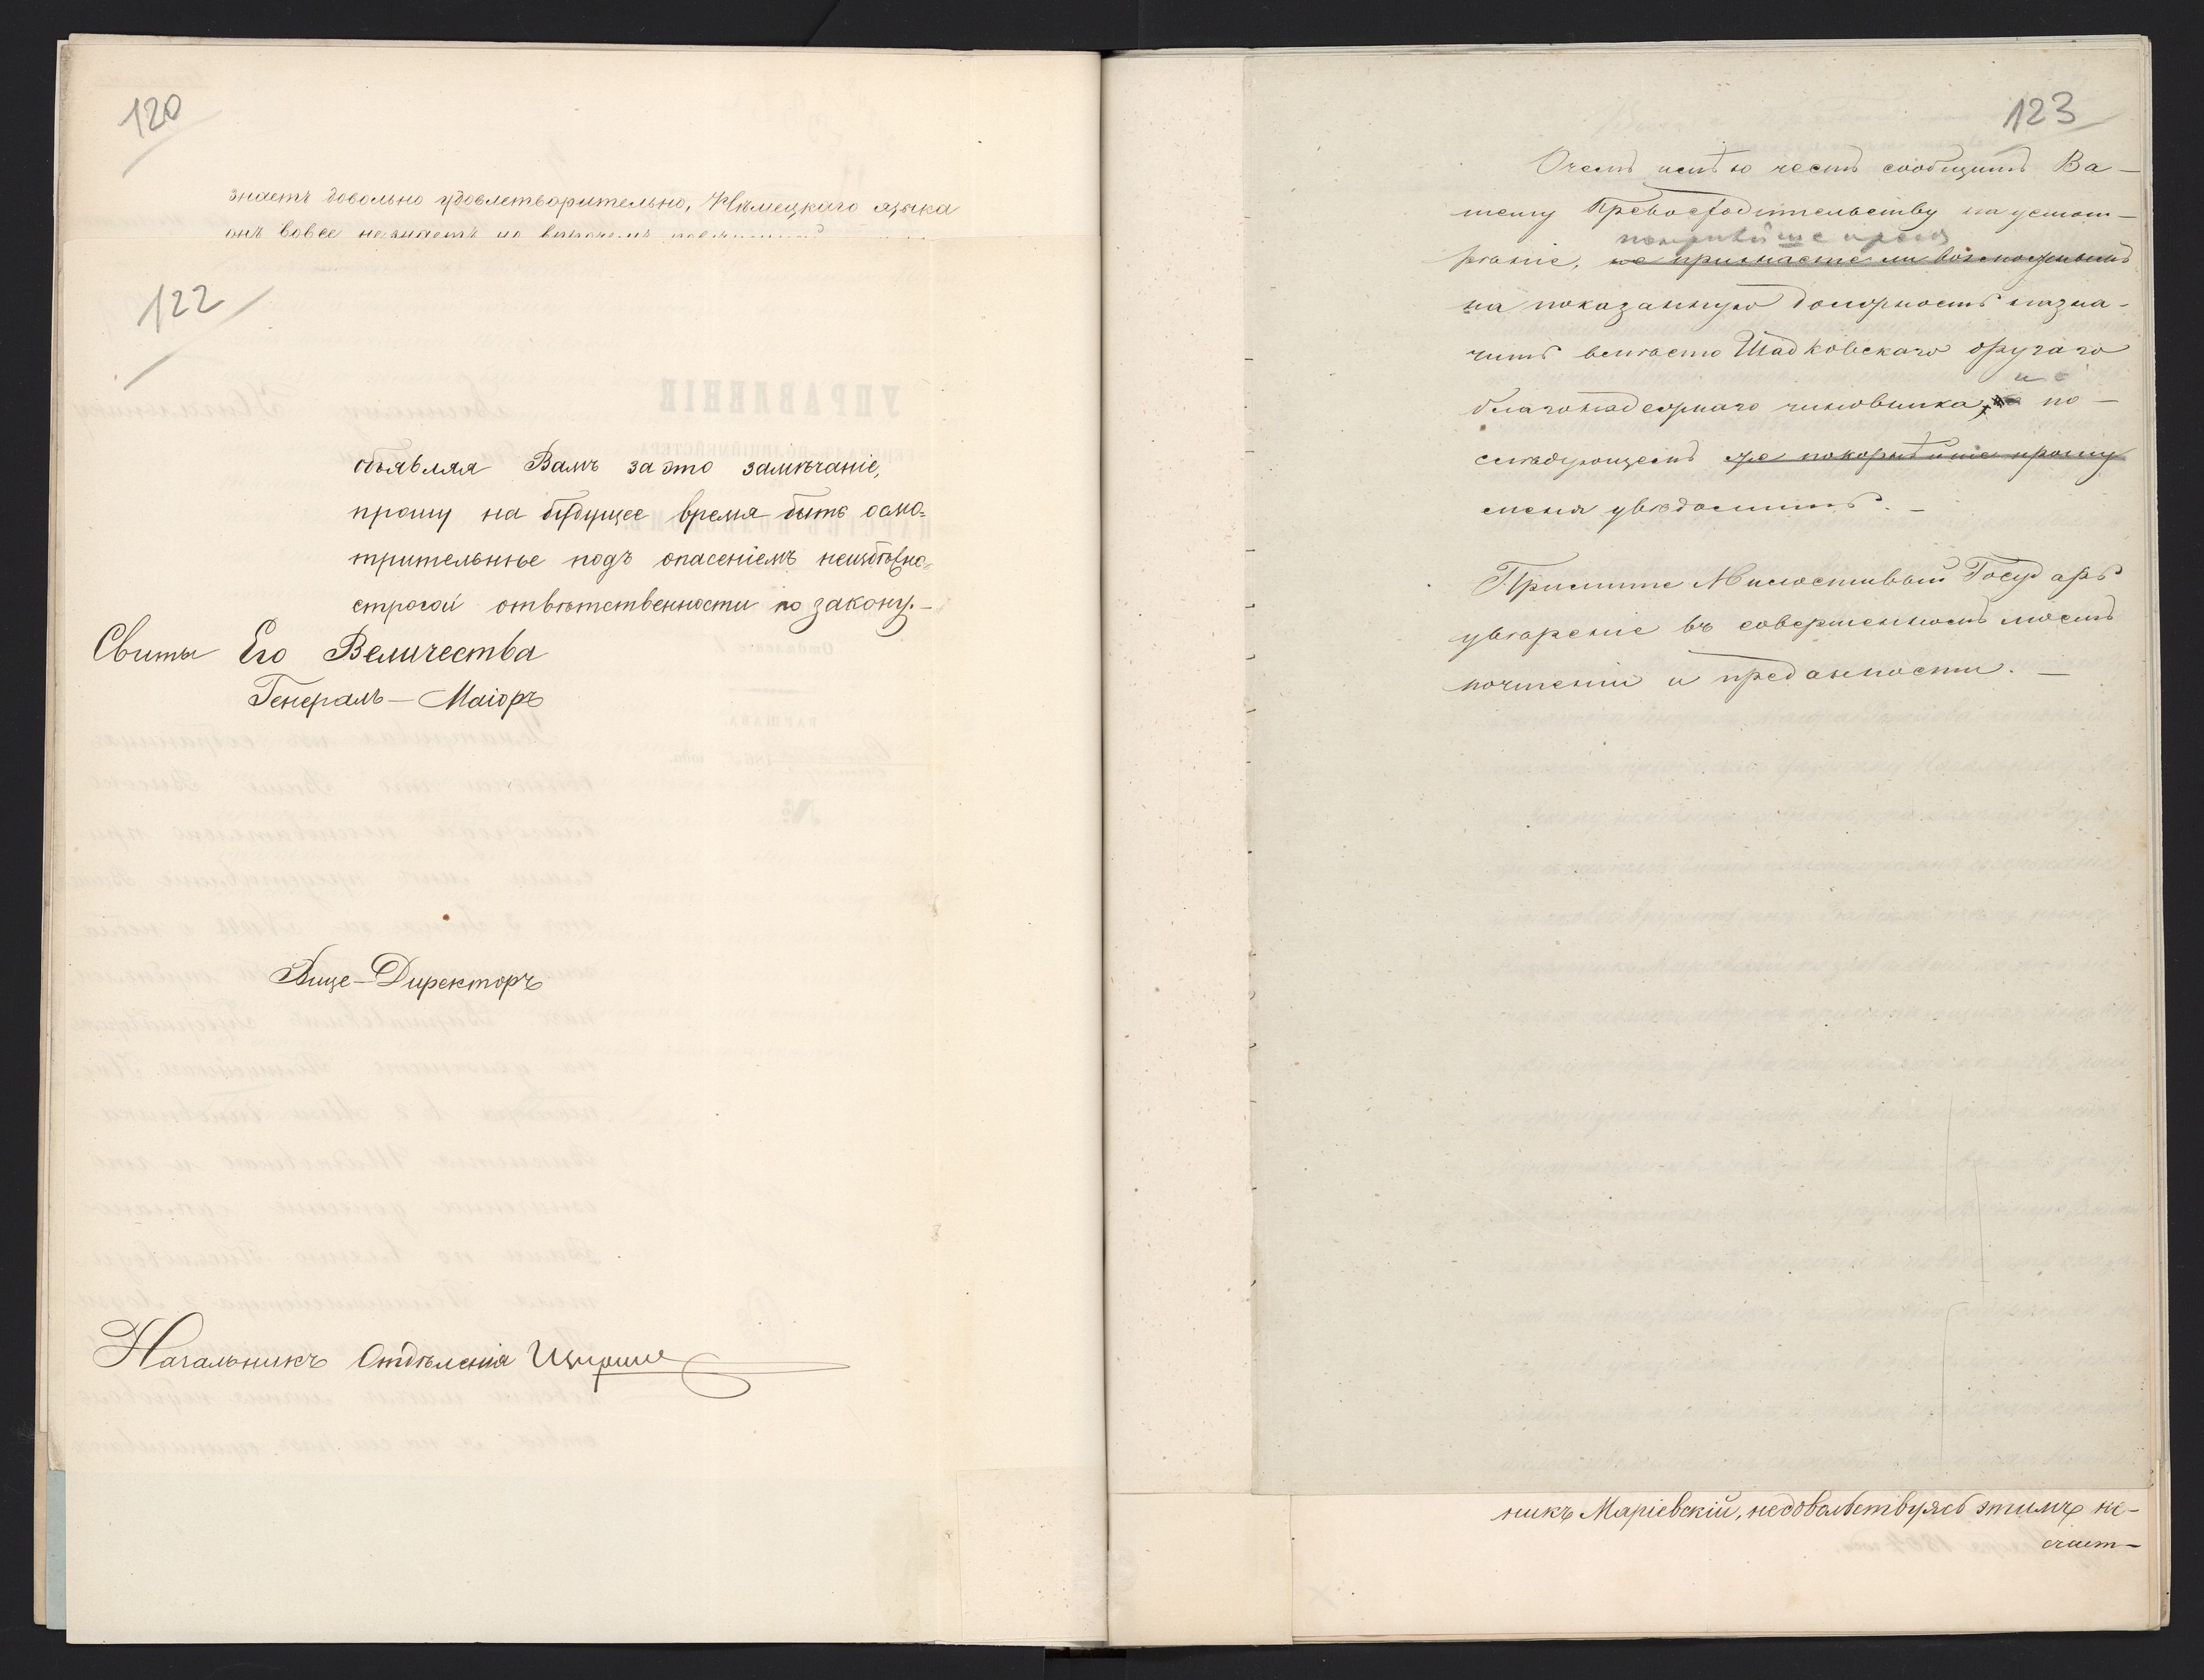 120
знаетъ довольно удовлетворительно, Нѣмецкаго языка
онъ вовсе незнаетъ но впрочемъ
122
объявляя Вамъ за это замѣчаніе,
прошу на будущее время быть осмо=
трительнѣе подъ опасеніемъ неизбѣжно=
строгой отвѣтственности по закону.—
Свиты Его Величества
Генералъ—Маіоръ
Вице—Директоръ
Начальникъ Отдѣленія
123
О чемъ имѣю честь сообщить Ва—
шему Превосходительству на усмот—
покорнѣйше прося
рѣніе, не признаете ли возможнымъ
на показанную должность назна—
чить вмѣсто Шадковскаго другаго
и о
благонадежнаго чиновника, по—
слѣдующемъ же покорнѣйше прошу
меня увѣдомить.—
Примите Милостивый Государь
увѣреніе въ совершенномъ моемъ
почтеніи и преданности.—
никъ Маріевскій, недовольствуясь этимъ не—
счаст—